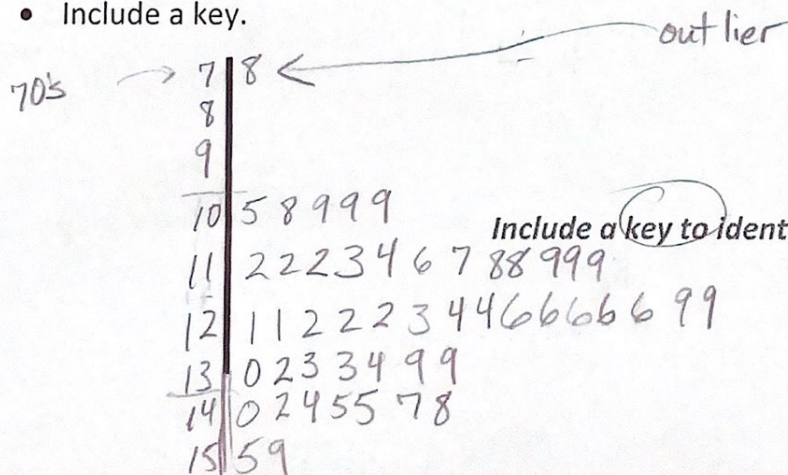 • Include a key.
out lier
70's 7 | 8
8
9
10 | 5 8 9 9 9
Include a key to ident
11 | 2 2 2 3 4 6 7 8 8 9 9 9
12 | 1 1 2 2 2 3 4 4 6 6 6 6 6 9 9
13 | 0 2 3 3 4 9 9
14 | 0 2 4 5 5 7 8
15 | 5 9